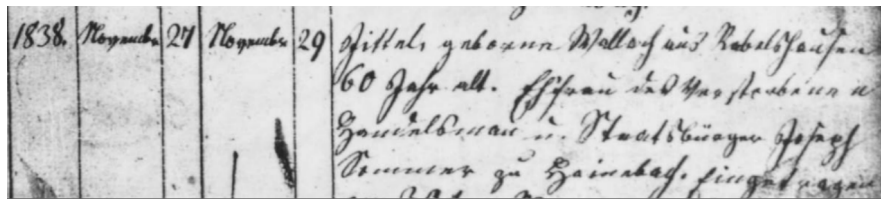 1838. November 27 November 29 Jittel, geborne Wallach aus Rabelshausen
60 Jahr alt. Ehfrau des Verstorbenen
Handelsman u. Staatsbürger Joseph
Sommer zu Hainebach. Eingetragen